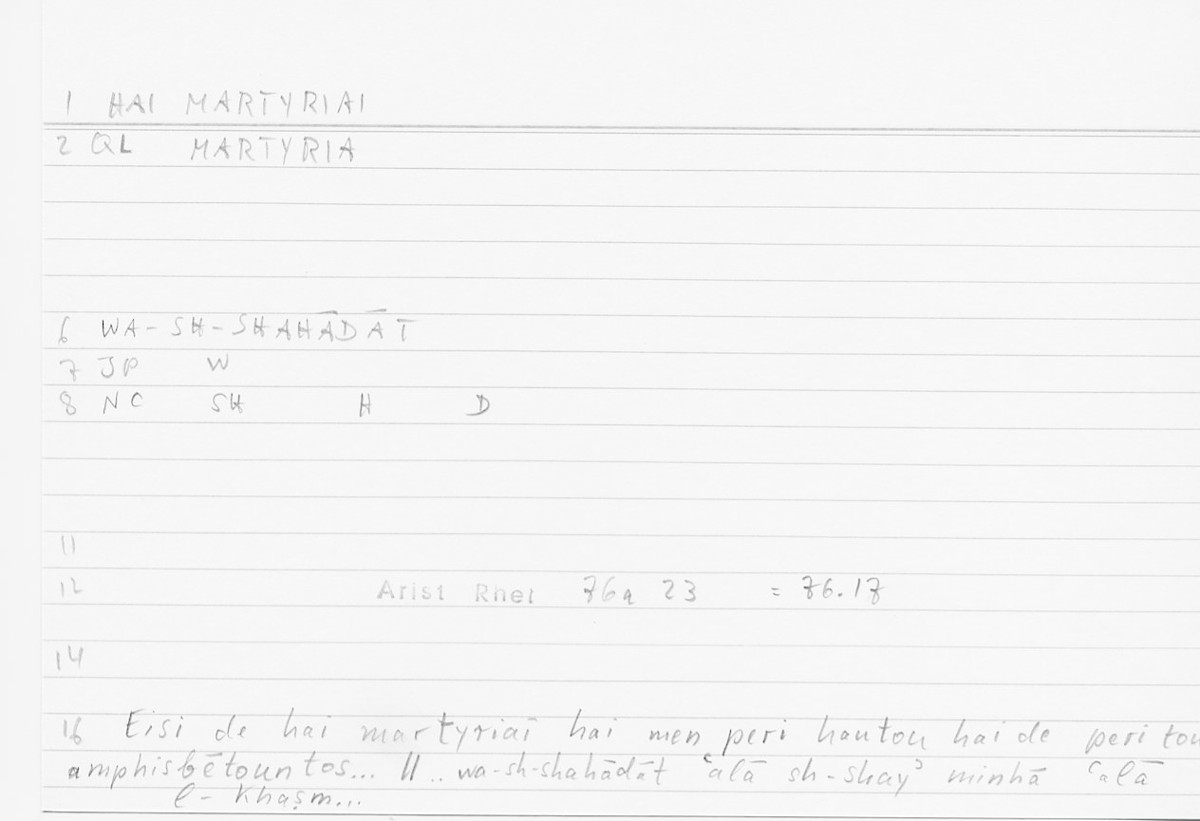 1 HAI MARTYRIAI
2 QL MARTYRIA
6 WA-SH-SHAHĀDĀT
7 JP W
8 NC SH H D
11
12 Arist Rhet 76a 23 = 76.17
14
16 Eisi de hai martyriai hai men peri hautou hai de peri tou
amphisbētountos... || .. wa-sh-shahādāt ʿalā sh-shayʾ minhā ʿalā
l-khaṣm...